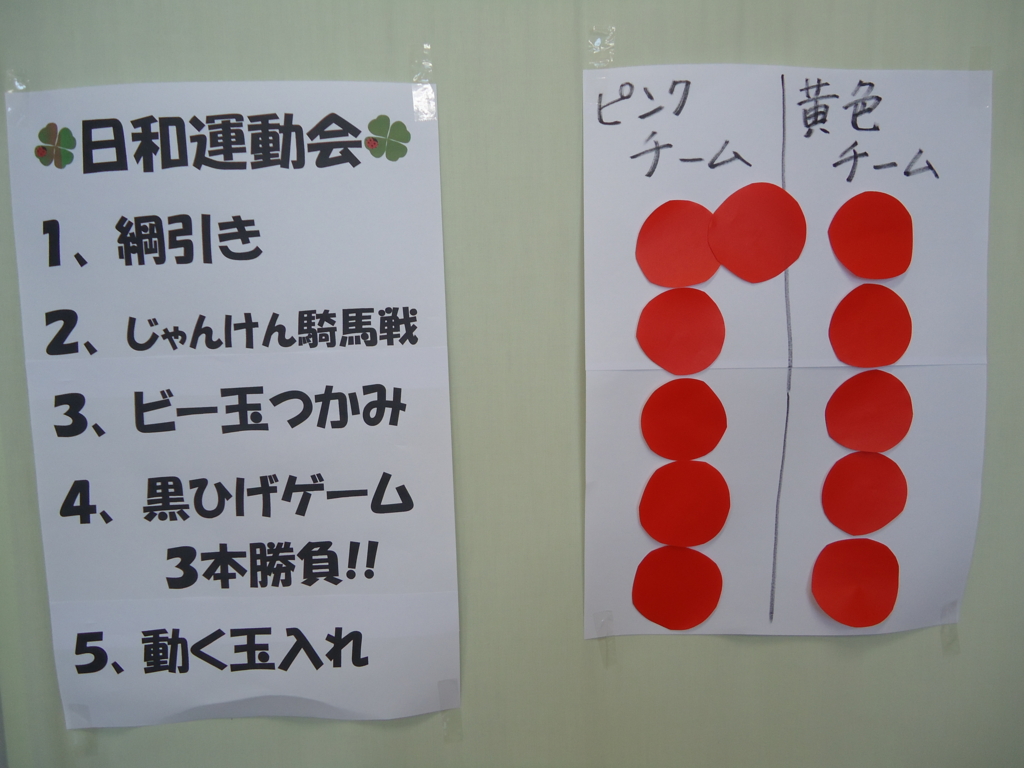 日和運動会
1、綱引き
2、じゃんけん騎馬戦
3、ビー玉つかみ
4、黒ひげゲーム
3本勝負!!
5、動く玉入れ
ピンク
チーム
黄色
チーム